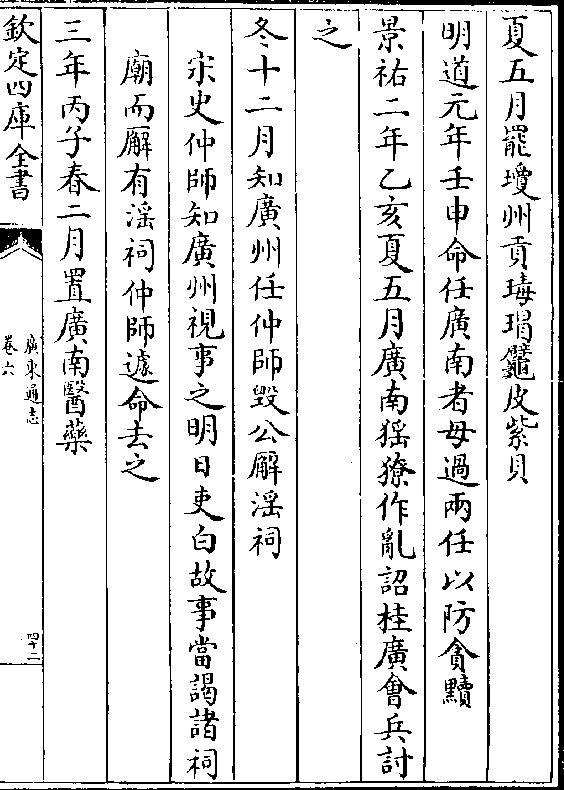 夏五月罷瓊州貢瑇瑁龜皮紫貝
明道元年壬申命任廣南者毋過兩任以防貪黷
景祐二年乙亥夏五月廣南猺獠作亂詔桂廣會兵討
之
冬十二月知廣州任仲師毀公廨淫祠
宋史仲師知廣州視事之明日吏白故事當謁諸祠
廟而廨有淫祠仲師遽命去之
三年丙子春二月置廣南醫藥
欽定四庫全書
廣東通志
卷六
四十二